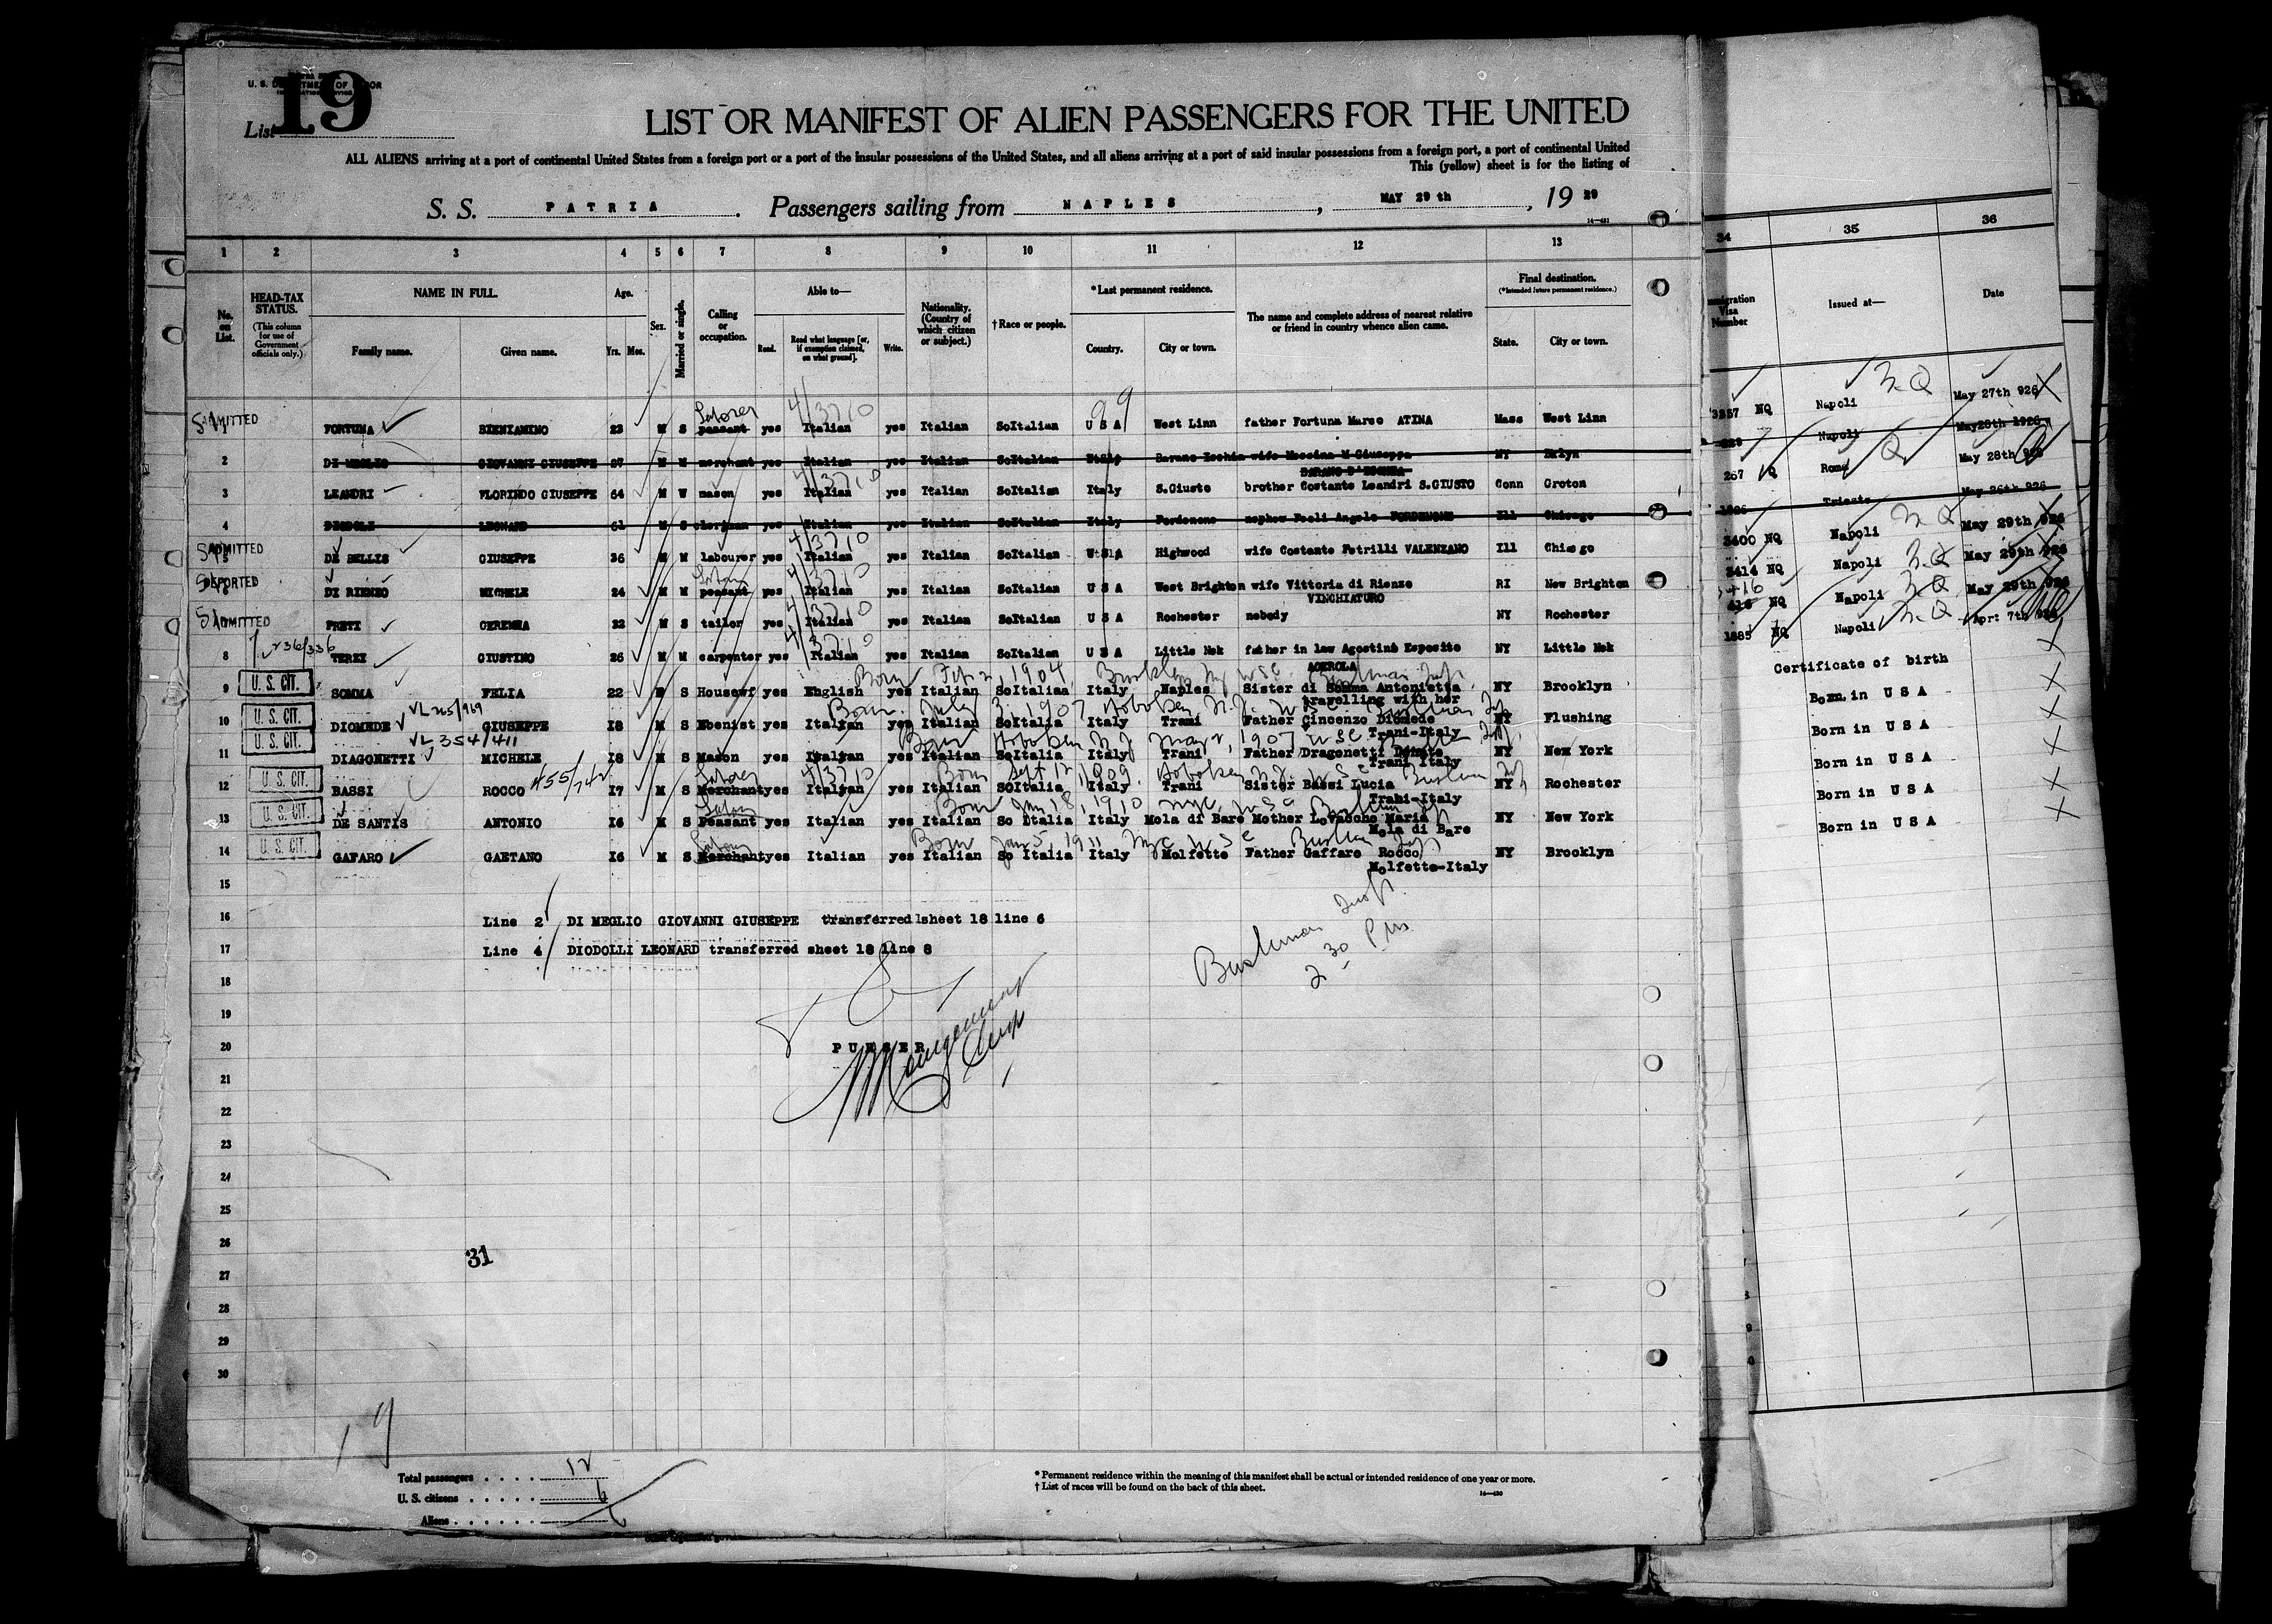 U. S. DEPARTMENT OF LABOR
List 19
LIST OR MANIFEST OF ALIEN PASSENGERS FOR THE UNITED
ALL ALIENS arriving at a port of continental United States from a foreign port or a port of the insular possessions of the United States, and all aliens arriving at a port of said insular possessions from a foreign port, a port of continental United
This (yellow) sheet is for the listing of
S. S. PATRIA. Passengers sailing from NAPLES, MAY 29 th, 19 29
1 2 3 4 5 6 7 8 9 10 11 12 13 34 35 36
No. on List.
HEAD-TAX STATUS. (This column for use of Government officials only.)
NAME IN FULL.
Family name. Given name.
Age. Yrs. Mos.
Sex.
Married or single.
Calling or occupation.
Able to—
Read. Read what language [or, if exemption claimed, on what ground]. Write.
Nationality. (Country of which citizen or subject.)
† Race or people.
* Last permanent residence.
Country. City or town.
The name and complete address of nearest relative or friend in country whence alien came.
Final destination. (*Intended future permanent residence.)
State. City or town.
Visa Number
Issued at—
Date
ADMITTED 1 FORTUNA BIENIAMINO 23 M S Laborer peasant yes Italian yes Italian SoItalian U S A West Linn father Fortuna Marco ATINA Mass West Linn 3257 NQ Napoli N.Q May 27th 926
2 DI MEGLIO GIOVANNI GIUSEPPE 27 M M merchant yes Italian yes Italian SoItalian Italy Barano Ischia wife Messina M Giuseppa NY Bklyn Napoli May28th 1926
BARANO D'ISCHIA
3 LEANDRI FLORINDO GIUSEPPE 64 M W mason yes Italian yes Italian SoItalian Italy S.Giusto brother Costante Leandri S.GIUSTO Conn Groton 267 Q Roma Q May 28th 926
4 DIODOLI LEONARD 61 M S clergman yes Italian yes Italian SoItalian Italy Pordenone nephew Paoli Angelo PORDENONE Ill Chicago Trieste May 26th 926
ADMITTED 5 DE BELLIS GIUSEPPE 36 M M labourer yes Italian yes Italian SoItalian U S A Highwood wife Costante Petrilli VALENZANO Ill Chicago 3400 NQ Napoli N Q May 29th 926
DEPORTED DI RIENZO MICHELE 24 M M peasant yes Italian yes Italian SoItalian U S A West Brighton wife Vittoria di Rienzo RI New Brighton 3414 NQ Napoli N.Q May 29th 926
VINCHIATURO
ADMITTED PRETI GEREMIA 32 M S tailor yes Italian yes Italian SoItalian U S A Rochester nobody NY Rochester 3416 NQ Napoli N.Q May 29th 926
8 TERZI GIUSTINO 26 M M carpenter yes Italian yes Italian SoItalian U S A Little Nek father in law Agostino Esposito NY Little Nek 1885 NQ Napoli N.Q Apr: 7th 926
AGEROLA
Certificate of birth
Born Feb 2, 1904 Brooklyn NY
U. S. CIT. 9 SOMMA FELIA 22 S Housewf yes English yes Italian SoItalian Italy Naples Sister di Somma Antonietta NY Brooklyn Born in U S A
travelling with her
VL 265/969
Born July 3, 1907 Hoboken N.J.
U. S. CIT. 10 DIOMEDE GIUSEPPE 18 M S Ebenist yes Italian yes Italian SoItalia Italy Trani Father Cincenzo Diomede NY Flushing Born in U S A
Trani-Italy
VL 354/411
Born Hoboken NJ May 2, 1907
U. S. CIT. 11 DIAGONETTI MICHELE 18 M S Mason yes Italian yes Italian SoItalia Italy Trani Father Dragonetti Donato NY New York Born in U S A
Trani Italy
Born Sept 12 1909 Hoboken N.J.
U. S. CIT. 12 BASSI ROCCO 17 M S Merchant yes Italian yes Italian SoItalia Italy Trani Sister Bassi Lucia NY Rochester Born in U S A
Trani-Italy
Born Jan 18, 1910 NYC
U. S. CIT. 13 DE SANTIS ANTONIO 16 M S Peasant yes Italian yes Italian So Italia Italy Mola di Bare Mother LoVacche Maria NY New York Born in U S A
Mola di Bare
Born Jan 5, 1911 NYC
U. S. CIT. 14 GAFARO GAETANO 16 M S Merchant yes Italian yes Italian So Italia Italy Molfette Father Gaffare Rocco NY Brooklyn
Molfette-Italy
15
16 Line 2 DI MEGLIO GIOVANNI GIUSEPPE transferred sheet 18 line 6
17 Line 4 DIODOLLI LEONARD transferred sheet 18 line 8
Bushman Insp.
2 30 Pm
18
19
20 PURSER
21
22
23
24
25
26
31
27
28
29
30
19
Total passengers . . . . . 12
U. S. citizens . . . . . 6
Aliens . . . . . . 6
* Permanent residence within the meaning of this manifest shall be actual or intended residence of one year or more.
† List of races will be found on the back of this sheet.